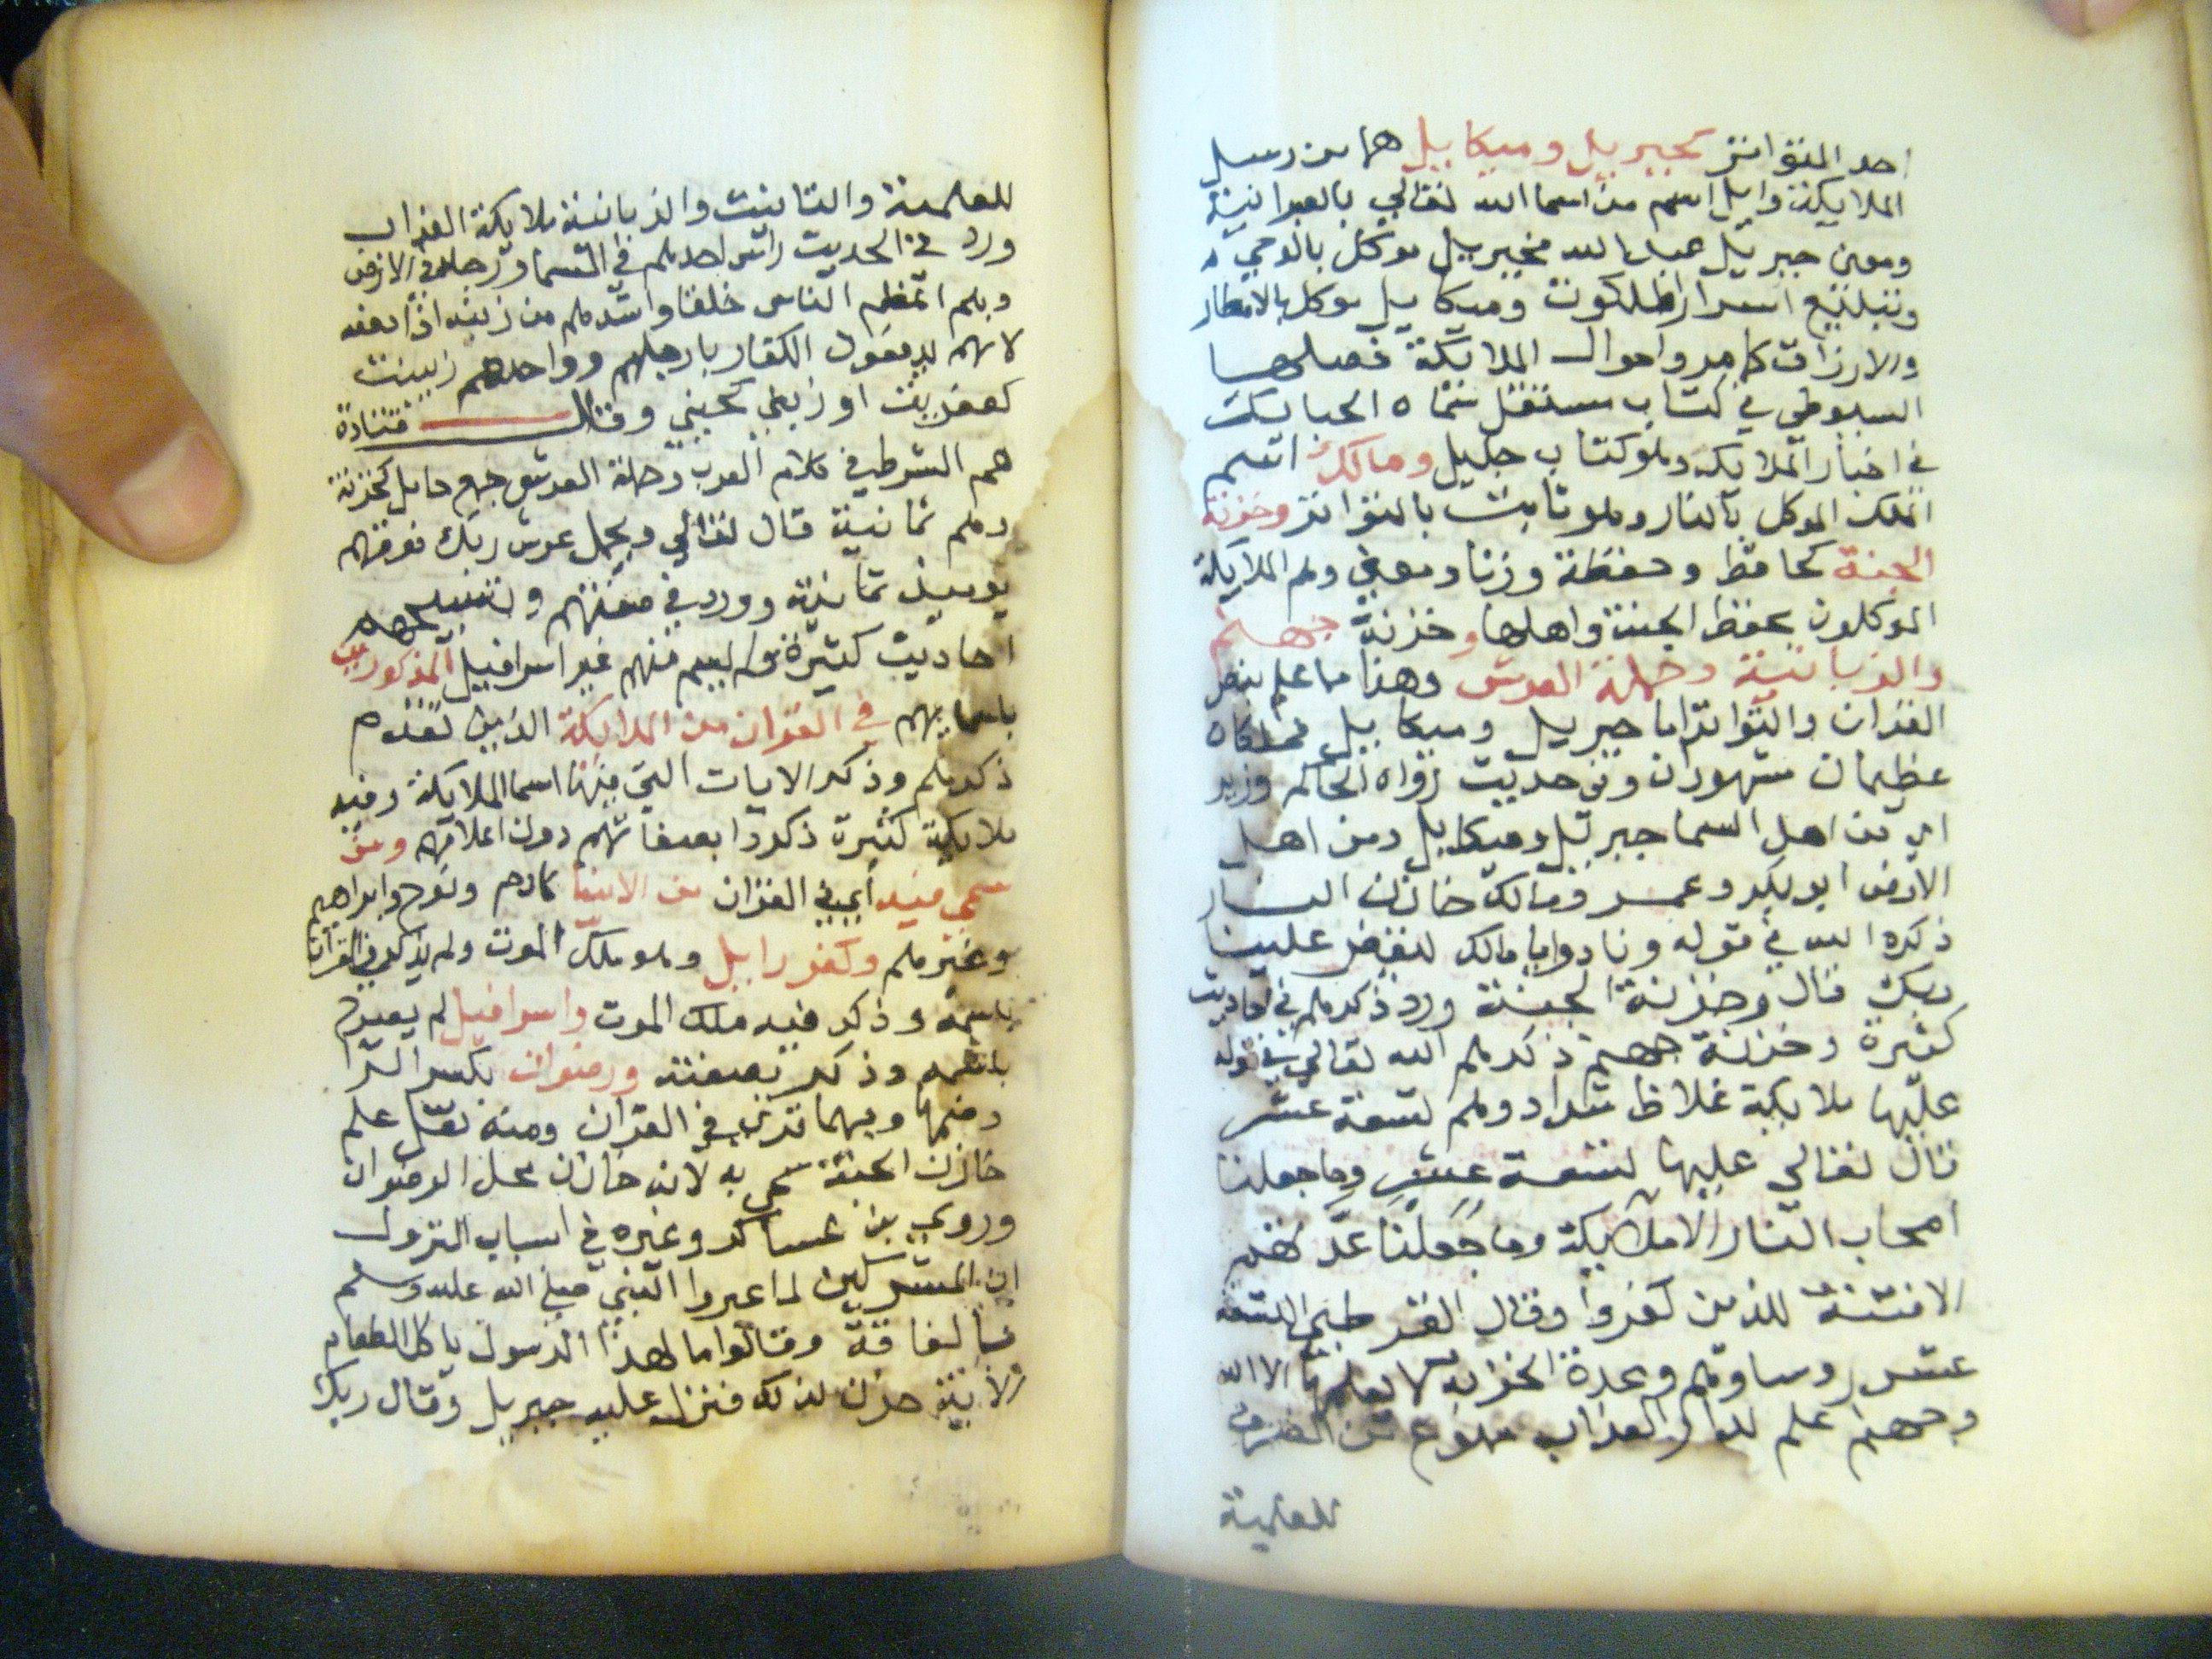 احد المتواتر كجبريل وميكاييل هما من رسل
الملايكة وايل اسم من اسما الله تعالي بالعبرانية
ومعنى جبريل عبد الله فجبريل موكل بالوحي
وتبليغ اسرار الملكوت وميكاييل موكل بالامطار
والارزاق كما مر واحوال الملائكة فصلها
السيوطي في كتاب مستقل سماه الحبايك
في اخبار الملايكة وهو كتاب جليل ومالك اسم
الملك الموكل بالنار وهو ثابت بالتواتر وخزنة
الجنة كحافظ وحفظة وزنا ومعنى وهم الملايكة
الموكلون بحفظ الجنة واهلها وخزنة جهنم
والزبانية وحملة العرش وهذا ما علم بنص
القران والتواتر اما جبريل وميكاييل فملكان
عظيمان مشهوران وفي حديث رواه الحاكم وزير
اي من اهل السما جبريل وميكاييل ومن اهل
الارض ابو بكر وعمر ومالك خازن النار
ذكره الله في قوله ونادوا يا مالك ليقض علينا
ربك قال وخزنة الجنة ورد ذكرهم في احاديث
كثيرة وخزنة جهنم ذكرهم الله تعالي في قوله
عليها ملايكة غلاظ شداد وهم تسعة عشر
قال تعالي عليها تسعة عشر وما جعلنا
اصحاب النار الا ملايكة وما جعلنا عدتهم
الا فتنة للذين كفروا وقال القرطبي التسعة
عشر روساوهم وعدة الخزنة لا يعلمها الا الله
وجهنم علم لدار العذاب ممنوع من الصرف
للعلمية
للعلمية والتانيث والزبانية ملايكة العذاب
ورد في الحديث راس احدهم في السما ورجله في الارض
وهم اعظم الناس خلقا واشدهم من زبنه اذا دفعه
لانهم يدفعون الكفار بارجلهم وواحدهم زبينت
كعفريت او زبني كجني وقال قتادة
هم الشرط في كلام العرب وحملة العرش جمع حامل كخزنة
وهم ثمانية قال تعالي ويحمل عرش ربك فوقهم
يوميذ ثمانية وورد في صفتهم وتسبيحهم
احاديث كثيرة ولم يسم منهم غير اسرافيل المذكورين
باسمايهم في القران من الملايكة الذين تقدم
ذكرهم وذكر الايات التي فيها اسما الملايكة وفيه
ملايكة كثيرة ذكروا بصفاتهم دون اعلامهم ومن
سمي فيه اي في القران من الانبيا كادم ونوح وابراهيم
وغيرهم وكعزراييل وهو ملك الموت ولم يذكر في القران
باسمه وذكر فيه ملك الموت واسرافيل لم يصرح
باسمه وذكر بصفته ورضوان بكسر الرا
وضمها وبهما قري في القران ومنه نقل علم
خازن الجنة سمي به لانه خازن محل الرضوان
وروي بن عساكر وغيره في اسباب النزول
ان المشركين لما عيروا النبي صلى الله عليه وسلم
بالفاقة وقالوا مال هذا الرسول ياكل الطعام
الاية حزن لذلك فنزل عليه جبريل وقال ربك